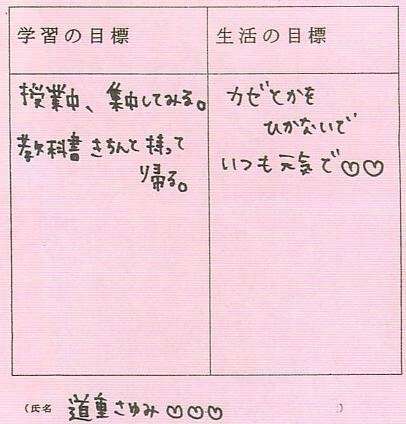 学習の目標
生活の目標
授業中、集中してみる。
教科書きちんと持って
り帰る。
カゼとかを
ひかないで
いつも元気で♡♡
(氏名 道重さゆみ♡♡♡ )